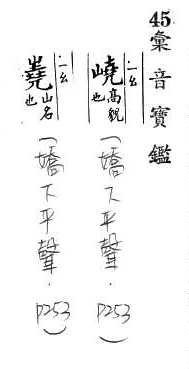 45彙音寶鑑
嶢高貌也(嬌下平聲.P253)
嶤山名也(嬌下平聲.P253)